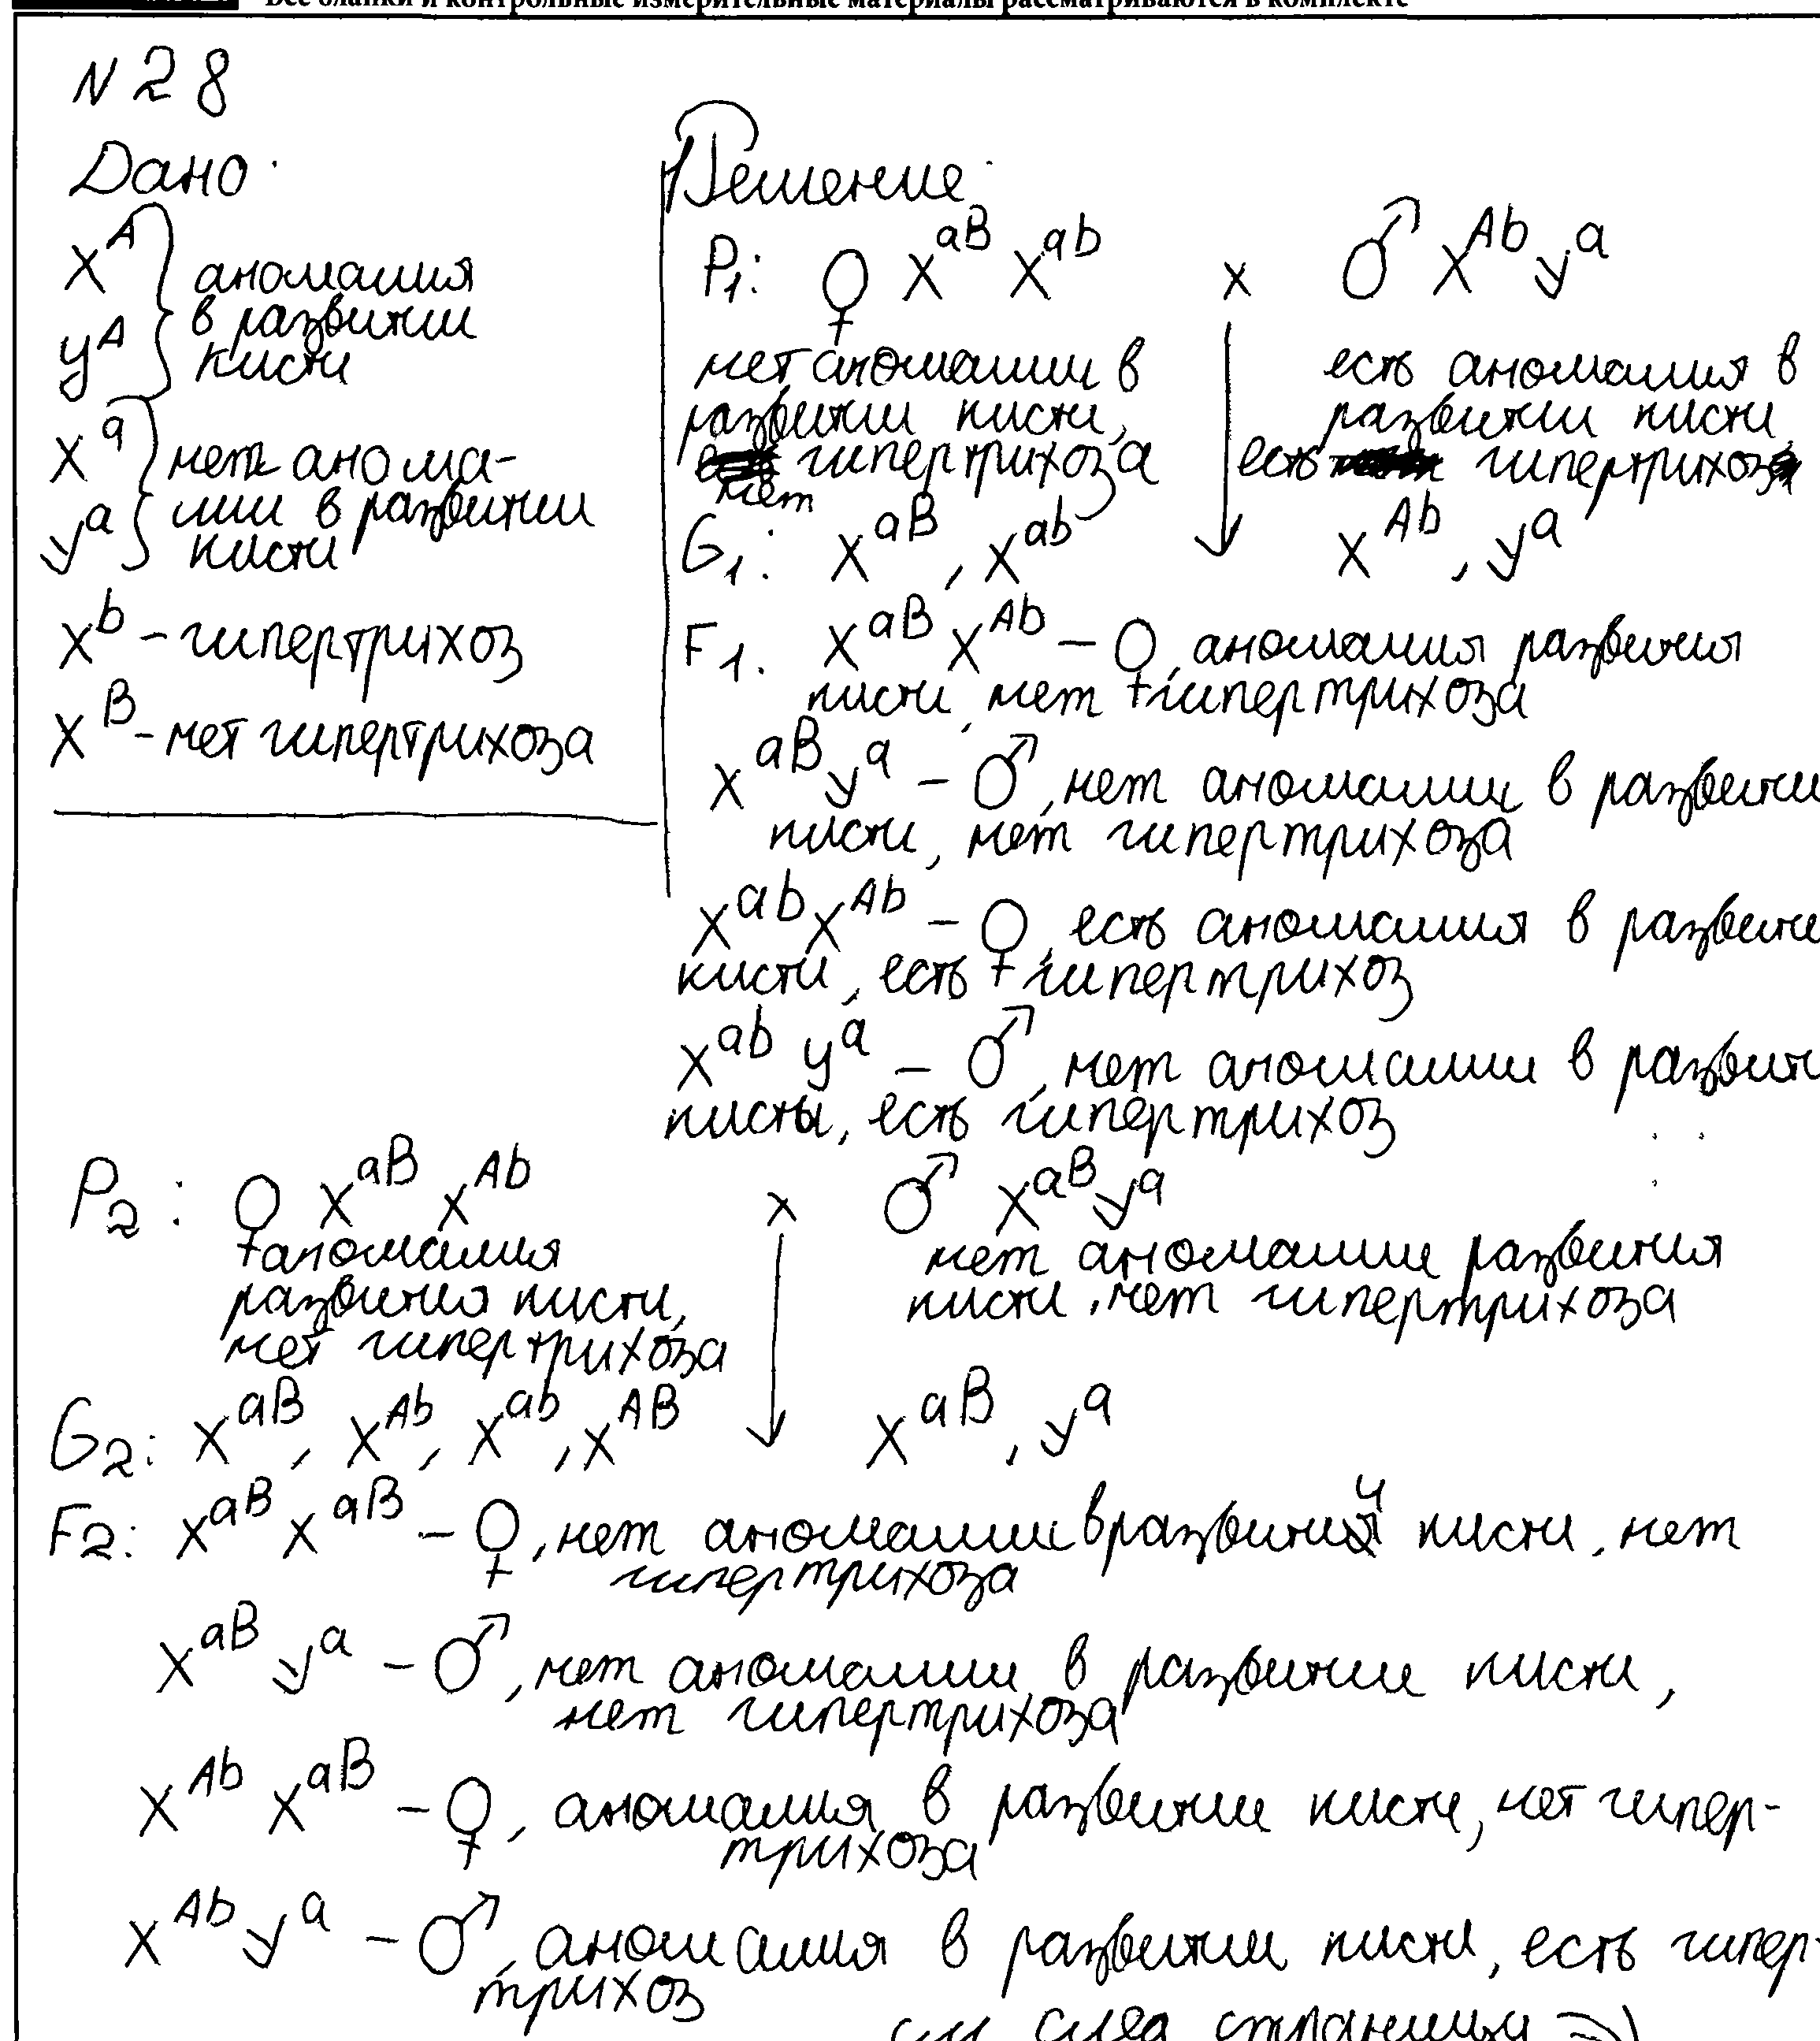 Все бланки и контрольные измерительные материалы рассматриваются в комплекте
N 28
Дано:
X^A
аномалия
в развитии
y^A
кисти
X^a
нет анома-
лии в развитии
y^a
кисти
X^b – гипертрихоз
X^B – нет гипертрихоза
Решение:
P1: ♀ X^aB X^ab x ♂ X^Ab y^a
нет аномалии в
развитии кисти,
гипертрихоза
нет
есть аномалия в
развитии кисти,
есть гипертрихоз
G1: X^aB, X^ab X^Ab, y^a
F1. X^aB X^Ab – ♀, аномалия развития
кисти, нет гипертрихоза
X^aB y^a – ♂, нет аномалии в развити
кисти, нет гипертрихоза
X^ab X^Ab – ♀, есть аномалия в развити
кисти, есть гипертрихоз
X^ab y^a – ♂, нет аномалии в развити
кисты, есть гипертрихоз
P2: ♀ X^aB X^Ab x ♂ X^aB y^a
аномалия
развития кисти,
нет гипертрихоза
нет аномалии развития
кисти, нет гипертрихоза
G2: X^aB, X^Ab, X^ab, X^AB X^aB, y^a
F2: X^aB X^aB – ♀, нет аномалии в развитии кисти, нет
гипертрихоза
X^aB y^a – ♂, нет аномалии в развитии кисти,
нет гипертрихоза
X^Ab X^aB – ♀, аномалия в развитии кисти, нет гипер-
трихоза
X^Ab y^a – ♂, аномалия в развитии кисти, есть гипер-
трихоз
см след страницы